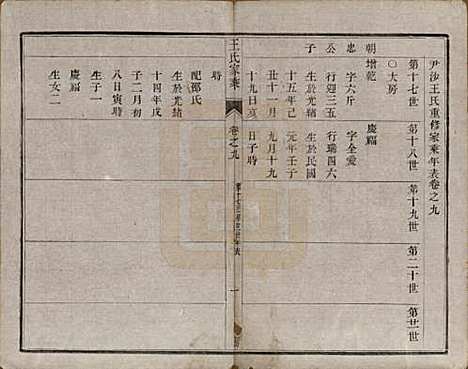 尹沙王氏重修家乘年表卷之九
第十七世 第十八世 第十九世 第二十世 第廿一世
〇大房
朝 增乾 慶福
忠 字六斤 字全愛
公 行迎三五 行瑞四六
子 生於光緒 生於民國
十五年己 元年壬子
丑十一月 九月十九
十九日亥 日子時
王氏家乘 卷之九 一
時
配邵氏
生於光緒
十四年戊
子二月初
八日寅時
生子一
慶福
生女二